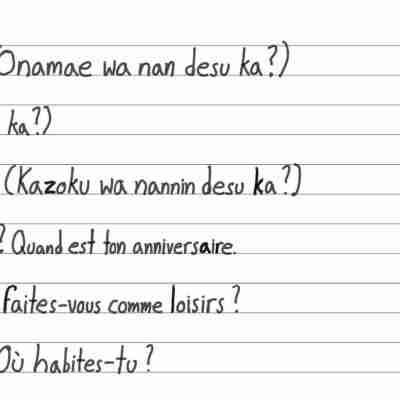 Onamae wa nan desu ka?)
ka?)
(Kazoku wa nannin desu ka?)
? Quand est ton anniversaire.
faites-vous comme loisirs ?
Où habites-tu ?